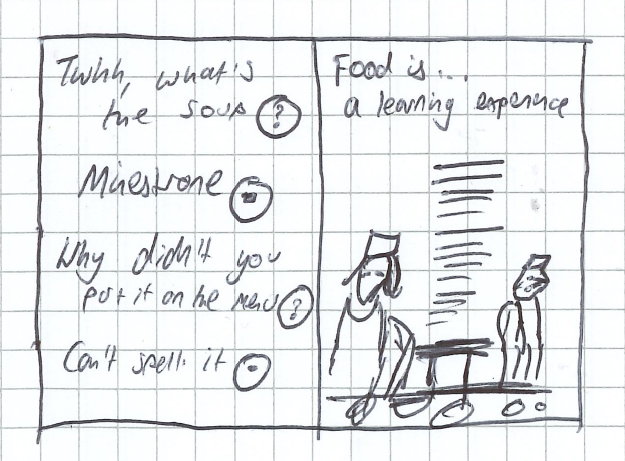 Twhh, what's
the soup ?
Minestrone .
Why didn't you
put it on the menu ?
Can't spell it .
Food is...
a learning experience